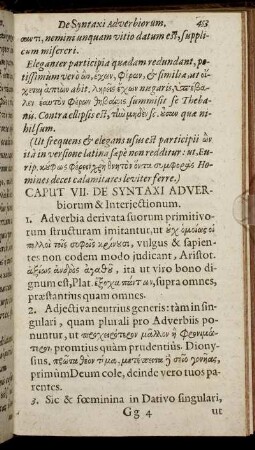 De Syntaxi Adverbiorum. 453
nemini unquam vitio datum est, suppli-
cum misereri.
Eleganter participia quædam redundant, po-
tissimùm verò ὢν, ἔχων, φέρων, & similia, ut οἴ-
abiit. nugaris,
ἑαυτὸν φέρων Θηβαίοις summisit se Theba-
nis. Contra ellipsis est, sc. quæ ni-
hil sum.
(Ut frequens & elegans usus est participii ὢν
ità in versione latina sæpè non redditur: ut. Eu-
rip. κούφως φέρειν χρὴ θνητὸν ὄντα συμφορὰς Ho-
mines decet calamitates leviter ferre.)
CAPUT VII. DE SYNTAXI ADVER-
biorum & Interjectionum.
1. Adverbia derivata suorum primitivo-
rum structuram imitantur, ut οὐχ ὁμοίως οἱ
πολλοὶ τοῖς σοφοῖς κρίνουσι, vulgus & sapien-
tes non codem modo judicant, Aristot.
ἀξίως ἀνδρὸς ἀγαθοῦ, ita ut viro bono di-
gnum est, Plat. ἔξοχα πάντων, supra omnes,
præstantius quam omnes.
2. Adjectiva neutrius generis: tàm in sin-
gulari, quam plurali pro Adverbiis po-
nuntur, ut μᾶλλον ἢ φρονιμώ-
τερον, promtius quàm prudentiùs. Diony-
sius, πρῶτα θεὸν τίμα, μετέπειτα γονῆας,
primùm Deum cole, deinde vero tuos pa-
rentes.
3. Sic & fœminina in Dativo singulari,
Gg 4 ut